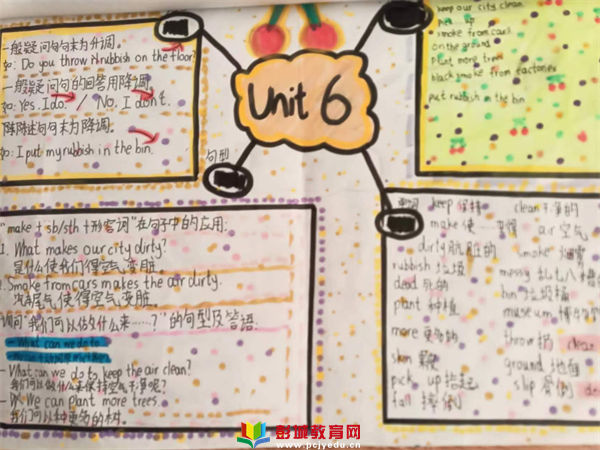 一般疑问句句末为升调。
如: Do you throw rubbish on the floor
一般疑问句的回答用降调
如: Yes. I do. / No. I don't.
陈述句句末为降调。
如: I put my rubbish in the bin.
Unit 6
keep our city clean
pick up
smoke from cars
on the ground
plant more trees
black smoke from factories
put rubbish in the bin
句型
"make + sb/sth + 形容词"在句子中的应用.
1. What makes our city dirty?
是什么使我们得空气变脏。
2. Smoke from cars makes the air dirty.
汽车尾气使得空气变脏。
询问"我们可以做什么来……?"的句型及答语.
- What can we do to
- What can we do to keep the air clean?
我们可以做什么来保持空气干净呢?
- We can plant more trees.
我们可以种更多的树。
keep 保持 clean 干净的
make 使 air 空气
dirty 肮脏的 smoke 烟雾
rubbish 垃圾 messy 乱七八糟
dead 死的 bin 垃圾桶
plant 种植 museum 博物
more 更多的 throw 扔
skin ground 地面
pick up 捡起 slip 滑倒
fall 摔倒
彭城教育网
www.pcjyedu.cn